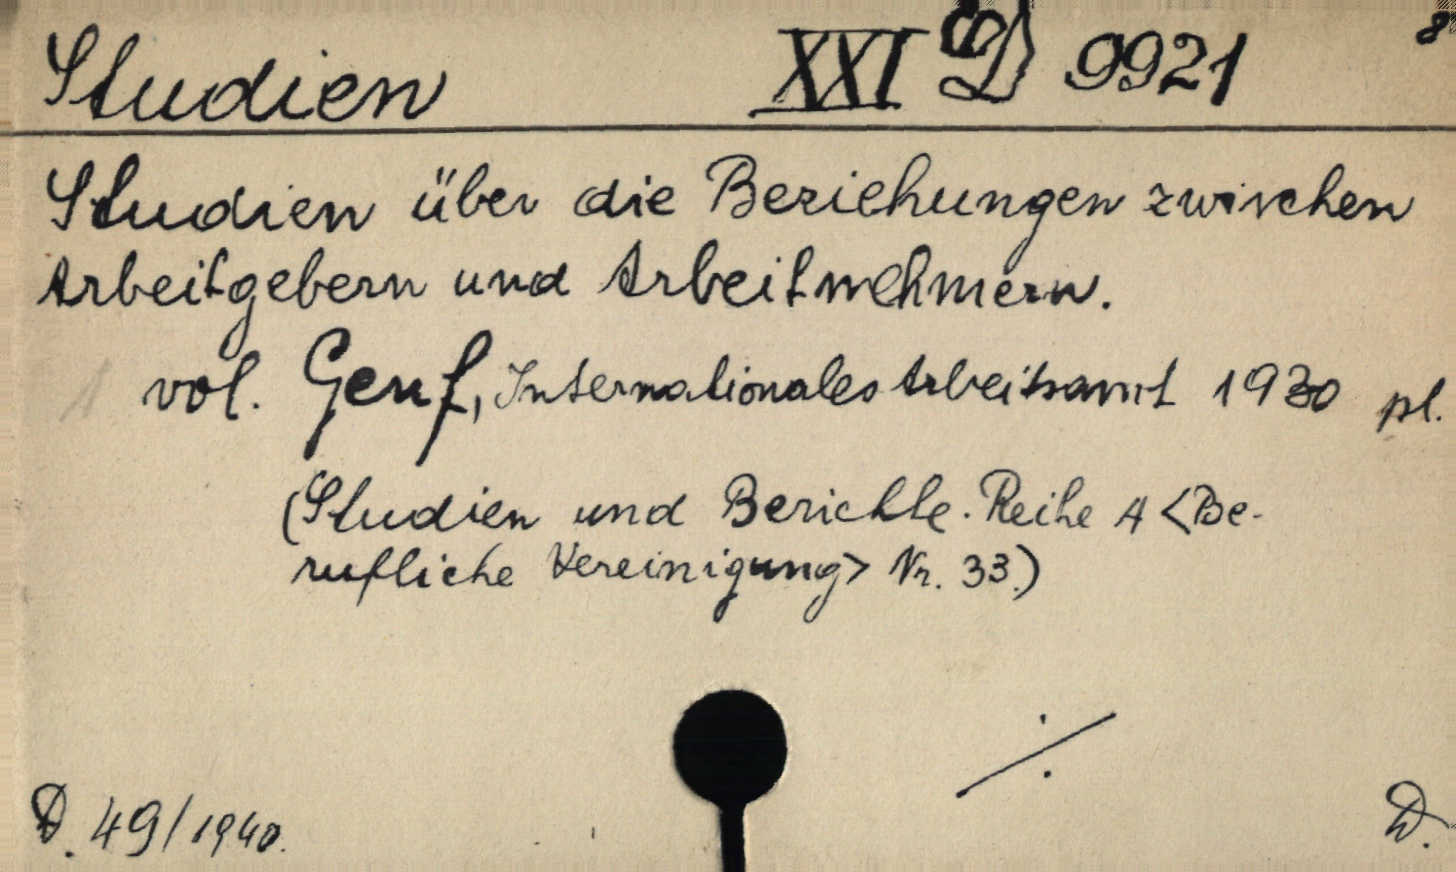 Studien XXI D 9921 8
Studien über die Beziehungen zwischen
Arbeitgebern und Arbeitnehmern.
1 vol. Genf, Internationales Arbeitsamt 1930 pl.
(Studien und Berichte. Reihe A <Be-
rufliche Vereinigung> Nr. 33.)
D. 49/1940. D.